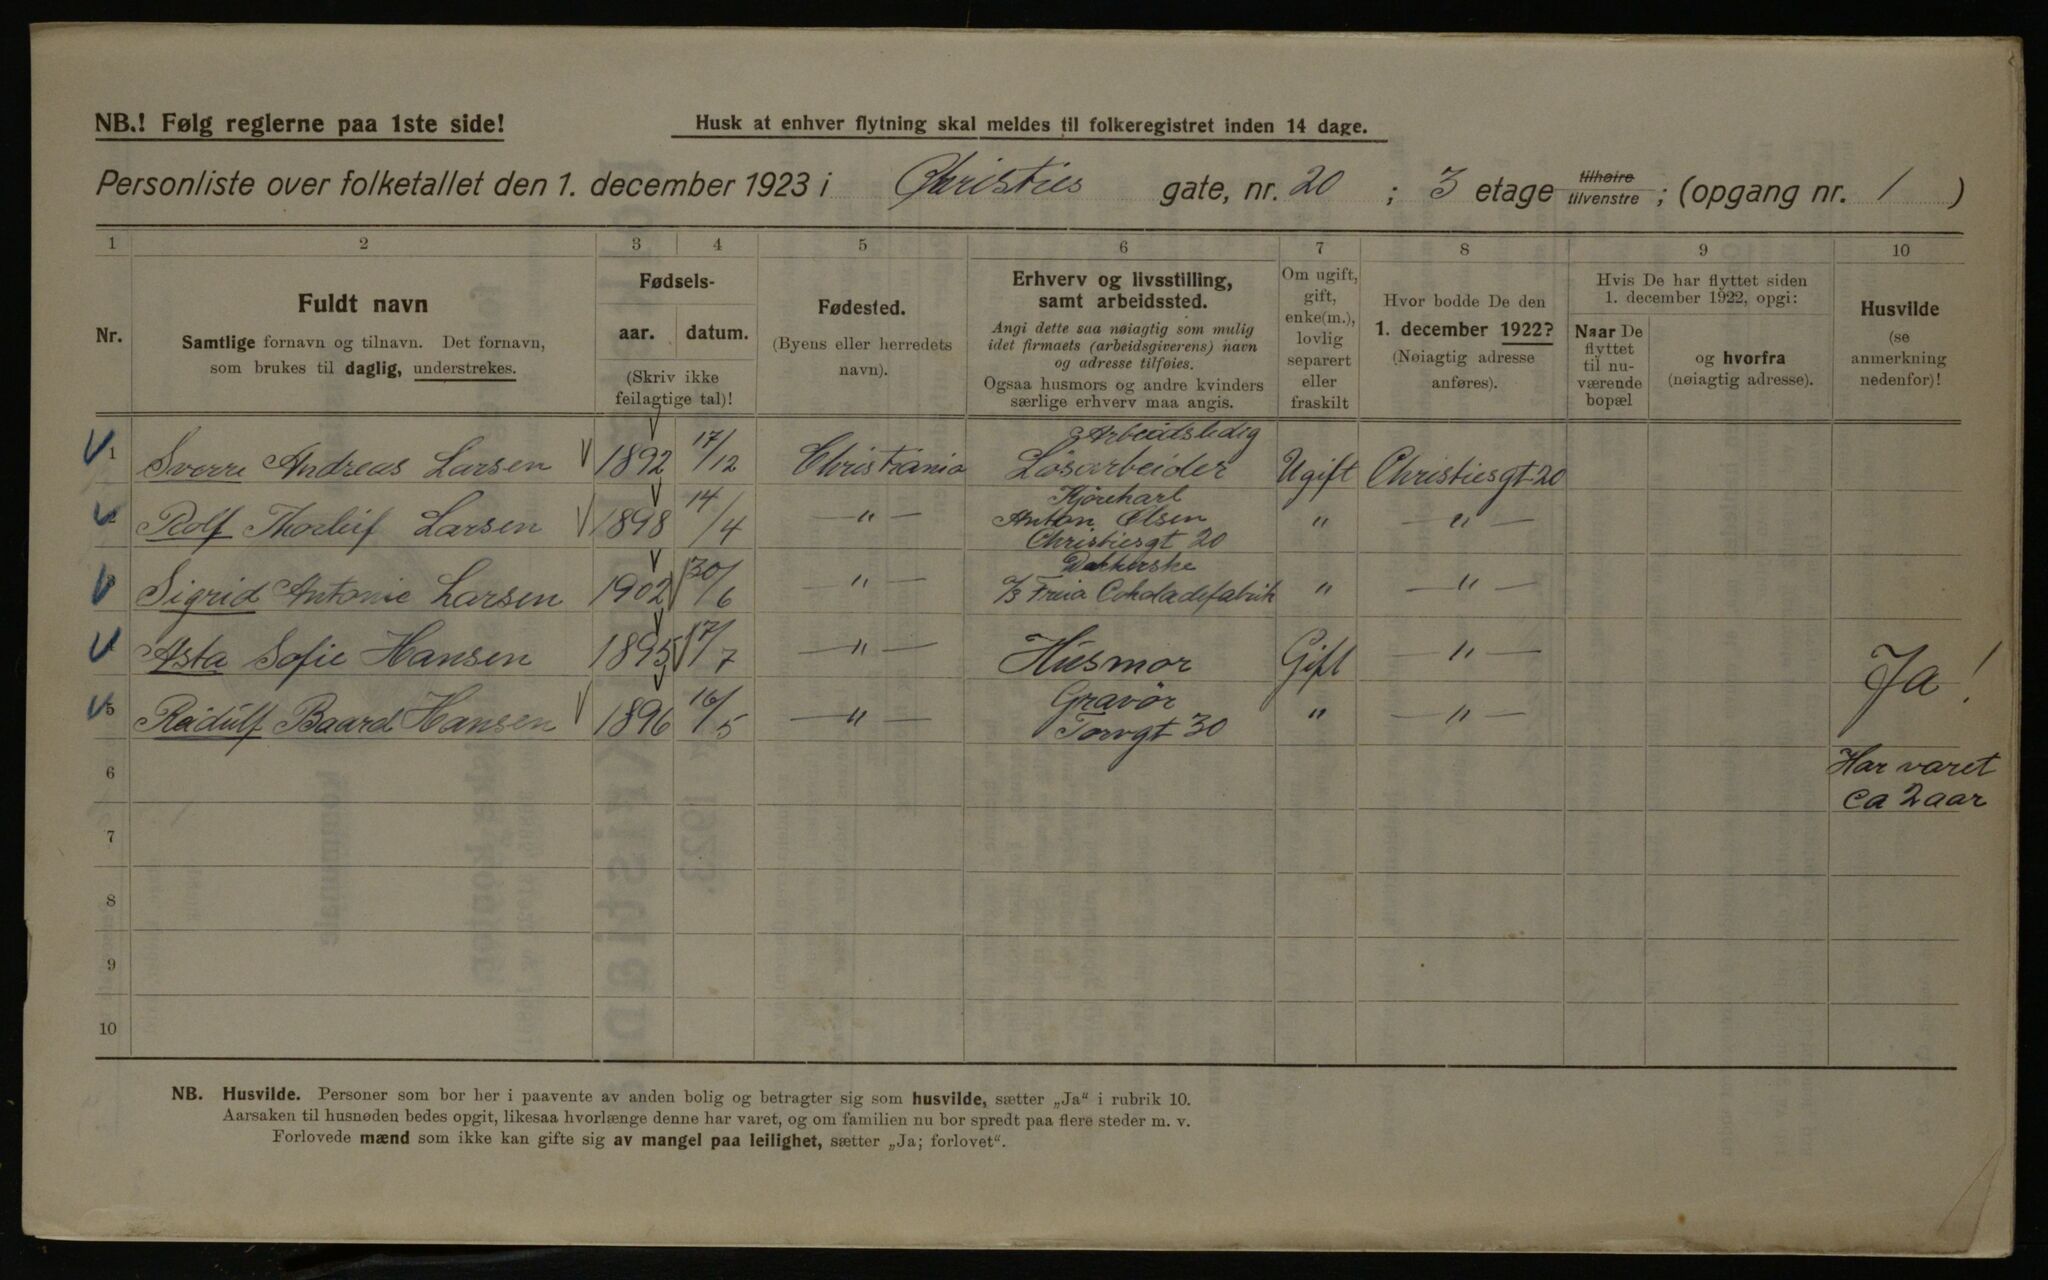 NB.! Følg reglerne paa 1ste side!
Husk at enhver flytning skal meldes til folkeregistret inden 14 dage.
Personliste over folketallet den 1. december 1923 i Christies gate, nr. 20 ; 3 etage tilhøire tilvenstre ; (opgang nr. 1 )
1 2 3 4 5 6 7 8 9 10
Nr.
Fuldt navn
Samtlige fornavn og tilnavn. Det fornavn,
som brukes til daglig, understrekes.
Fødsels-
aar. datum.
(Skriv ikke
feilagtige tal)!
Fødested.
(Byens eller herredets
navn).
Erhverv og livsstilling,
samt arbeidssted.
Angi dette saa nøiagtig som mulig
idet firmaets (arbeidsgiverens) navn
og adresse tilføies.
Ogsaa husmors og andre kvinders
særlige erhverv maa angis.
Om ugift,
gift,
enke(m.),
lovlig
separert
eller
fraskilt
Hvor bodde De den
1. december 1922?
(Nøiagtig adresse
anføres).
Hvis De har flyttet siden
1. december 1922, opgi:
Naar De
flyttet
til nu-
værende
bopæl
og hvorfra
(nøiagtig adresse).
Husvilde
(se
anmerkning
nedenfor)!
Arbeidsledig
1 Sverre Andreas Larsen 1892 17/12 Christiania Løsarbeider Ugift Christiesgt 20
Kjørekarl
2 Rolf Thorleif Larsen 1898 14/4 — " — Anton Olsen " — " —
Christiesgt 20
3 Sigrid Antonie Larsen 1902 30/6 — " — Freia Cokoladefabrik " — " —
4 Asta Sofie Hansen 1895 17/7 — " — Husmor Gift — " — Ja!
Gravør
5 Radulf Baard Hansen 1896 16/5 — " — Torvgt 30 " — " —
6 Har varet
ca 2 aar
7
8
9
10
NB. Husvilde. Personer som bor her i paavente av anden bolig og betragter sig som husvilde, sætter „Ja“ i rubrik 10.
Aarsaken til husnøden bedes opgit, likesaa hvorlænge denne har varet, og om familien nu bor spredt paa flere steder m. v.
Forlovede mænd som ikke kan gifte sig av mangel paa leilighet, sætter „Ja; forlovet“.